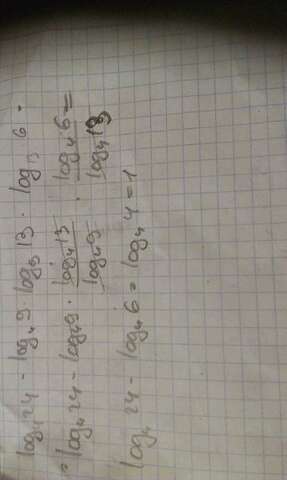 log₄24 - log₄9 · log₉13 · log₁₃6 =
= log₄24 - log₄9 · log₄13/log₄9 · log₄6/log₄13 =
log₄24 - log₄6 = log₄4 = 1